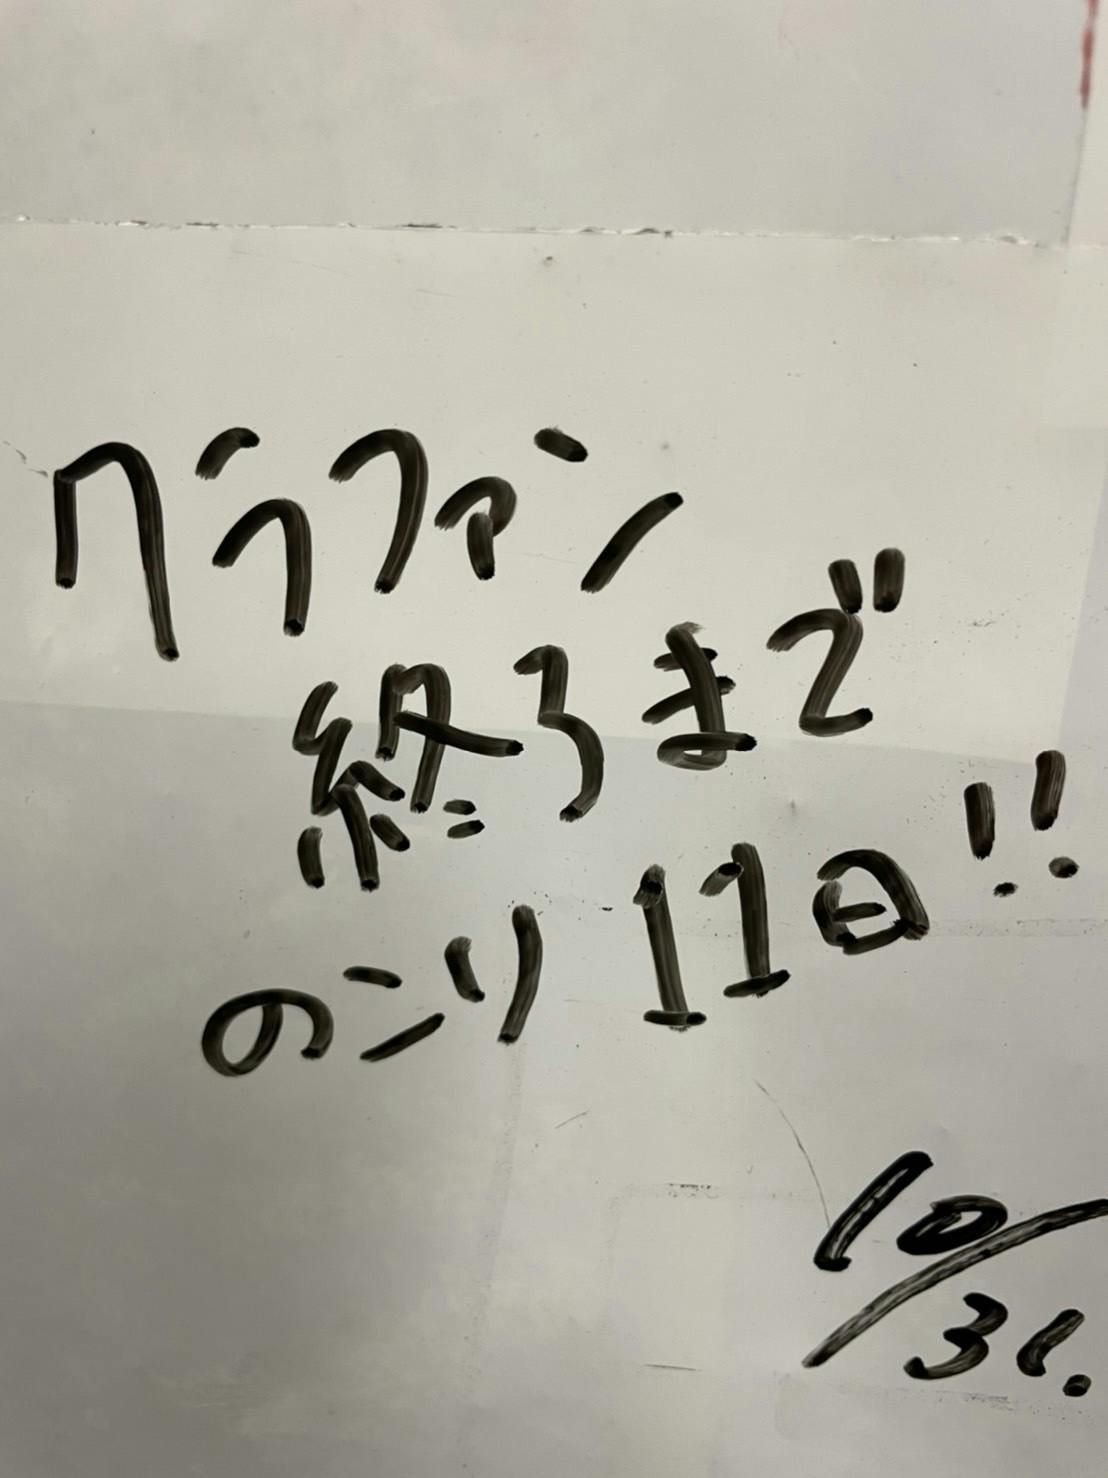 クラファン
終るまで
のこり 11日!!
10/31.